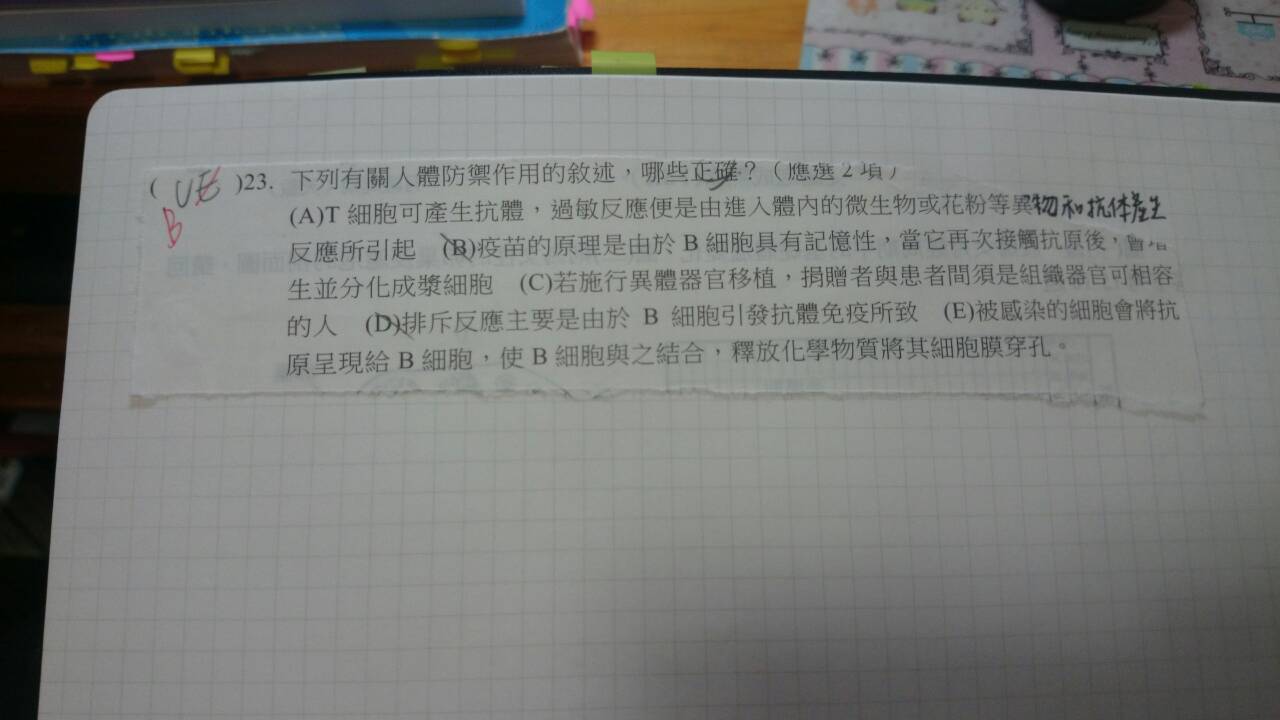 ( CE )23. 下列有關人體防禦作用的敘述，哪些正確？（應選2項）
B
(A)T 細胞可產生抗體，過敏反應便是由進入體內的微生物或花粉等異物和抗体產生
反應所引起 (B)疫苗的原理是由於 B 細胞具有記憶性，當它再次接觸抗原後，會增
生並分化成漿細胞 (C)若施行異體器官移植，捐贈者與患者間須是組織器官可相容
的人 (D)排斥反應主要是由於 B 細胞引發抗體免疫所致 (E)被感染的細胞會將抗
原呈現給 B 細胞，使 B 細胞與之結合，釋放化學物質將其細胞膜穿孔。